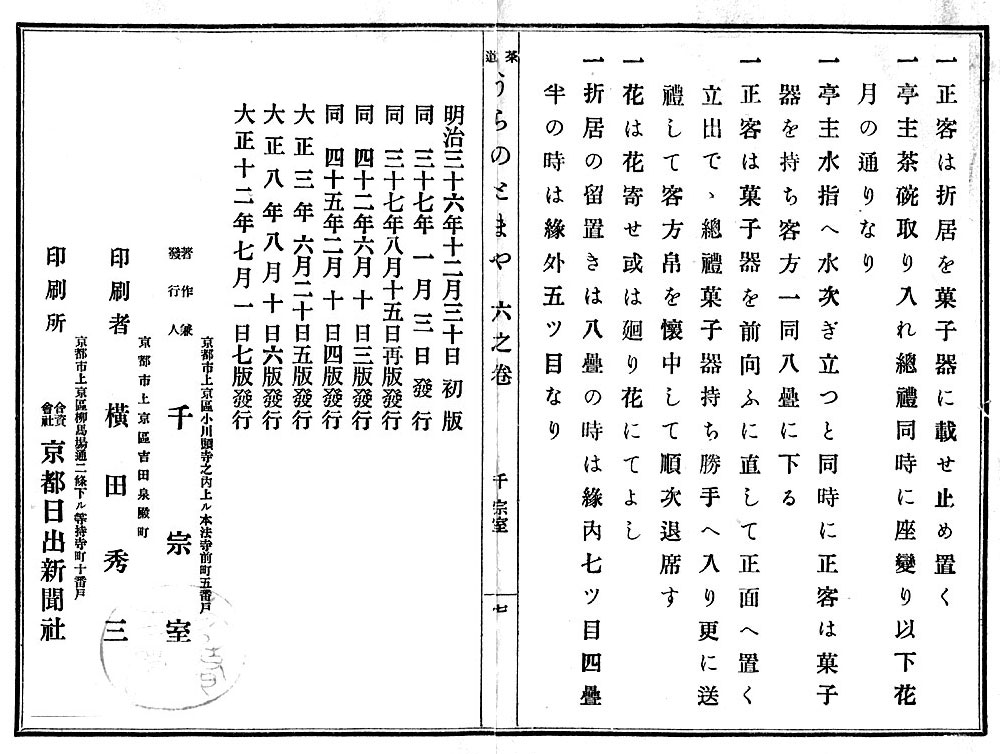 一正客は折居を菓子器に載せ止め置く
一亭主茶碗取り入れ總禮同時に座變り以下花
月の通りなり
一亭主水指へ水次ぎ立つと同時に正客は菓子
器を持ち客方一同八疊に下る
一正客は菓子器を前向ふに直して正面へ置く
立出で、總禮菓子器持ち勝手へ入り更に送
禮して客方帛を懷中して順次退席す
一花は花寄せ或は廻り花にてよし
一折居の留置きは八疊の時は緣內七ツ目四疊
半の時は緣外五ツ目なり
茶道
うらのとまや 六之卷
千宗室
七
明治三十六年十二月三十日 初版
同 三十七年 一月三日 發行
同 三十七年八月十五日再版發行
同 四十二年六月十日三版發行
同 四十五年二月十日四版發行
大正三年六月二十日五版發行
大正八年八月十日六版發行
大正十二年七月一日七版發行
京都市上京區小川頭寺之內上ル本法寺前町五番戶
著作兼
發行人
千宗室
京都市上京區吉田泉殿町
印刷者
橫田秀三
京都市上京區柳馬場通二條下ル等持寺町十番戶
印刷所
合資
會社
京都日出新聞社